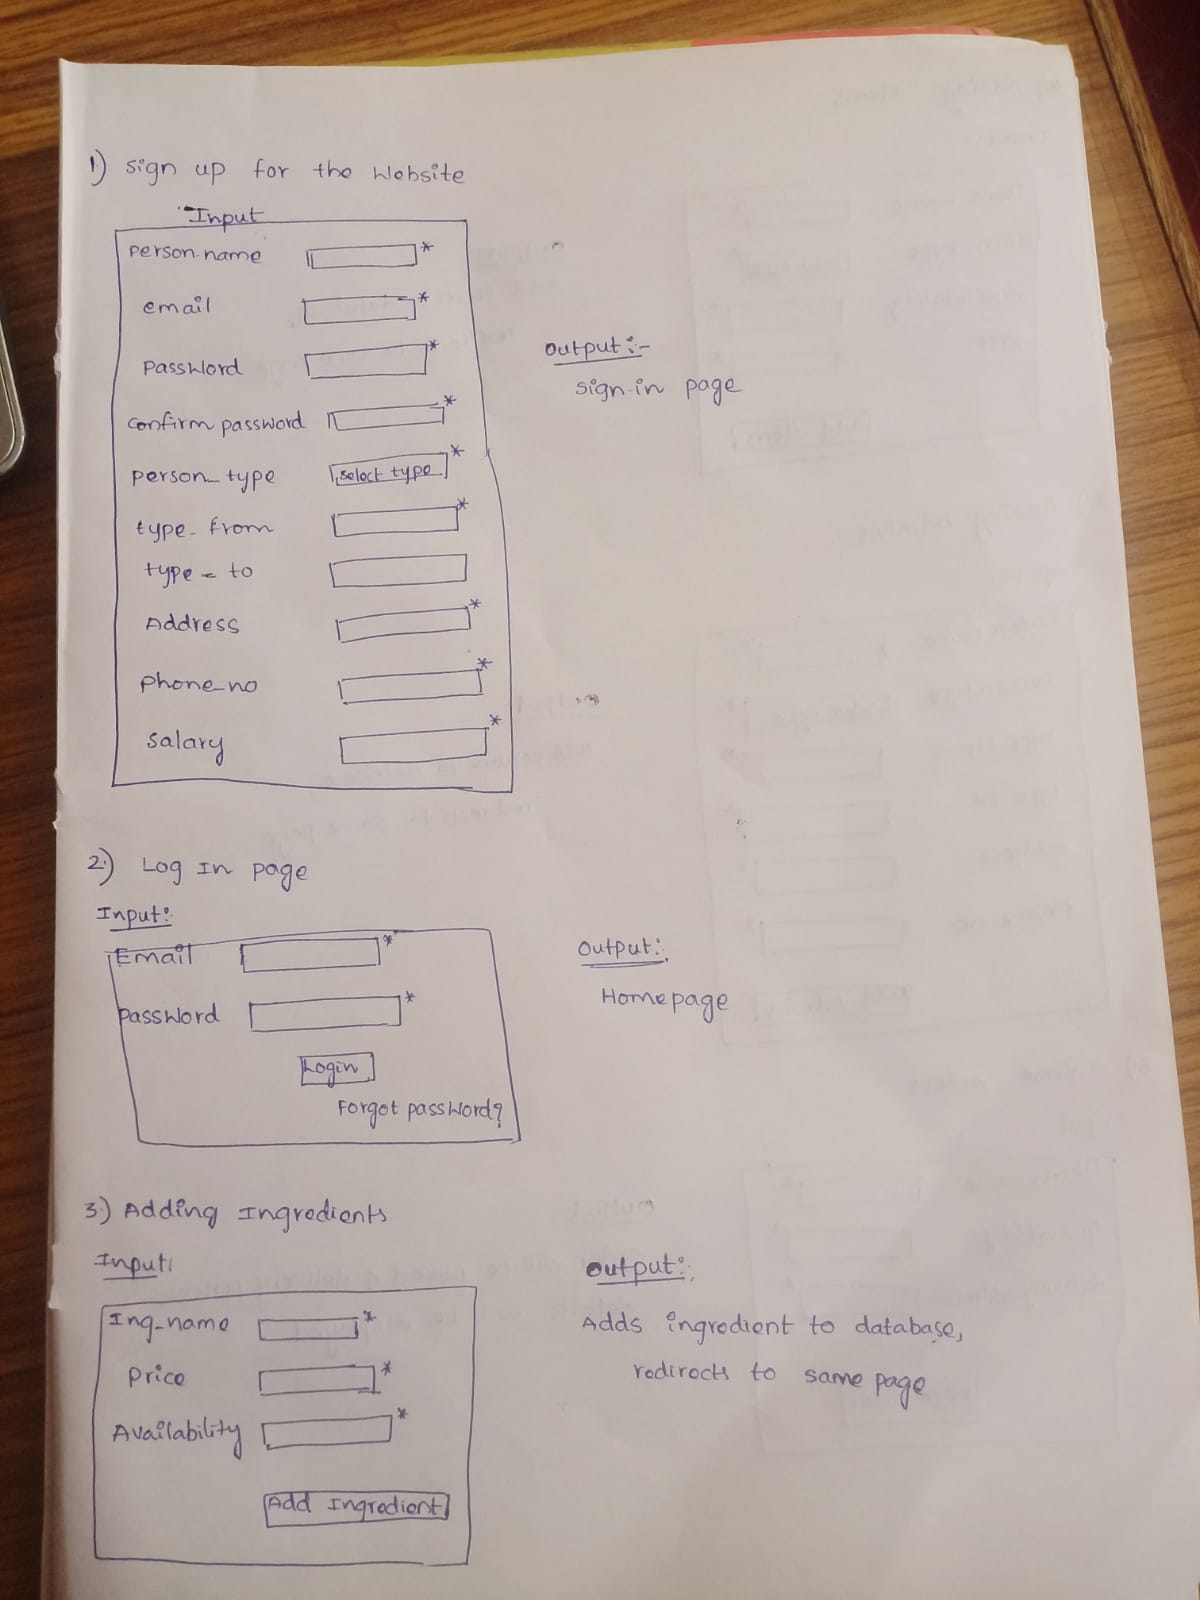 1) Sign up for the Website
Input
person-name *
email *
password *
Confirm password *
person_type select type *
type-from *
type-to
Address *
phone_no *
salary *
Output:-
sign-in page
2) Log In page
Input:
Email *
password *
Login
Forgot password?
Output:
Homepage
3) Adding Ingredients
Input:
Ing-name *
price *
Availability *
Add Ingredient
Output:
Adds ingredient to database,
redirects to same page